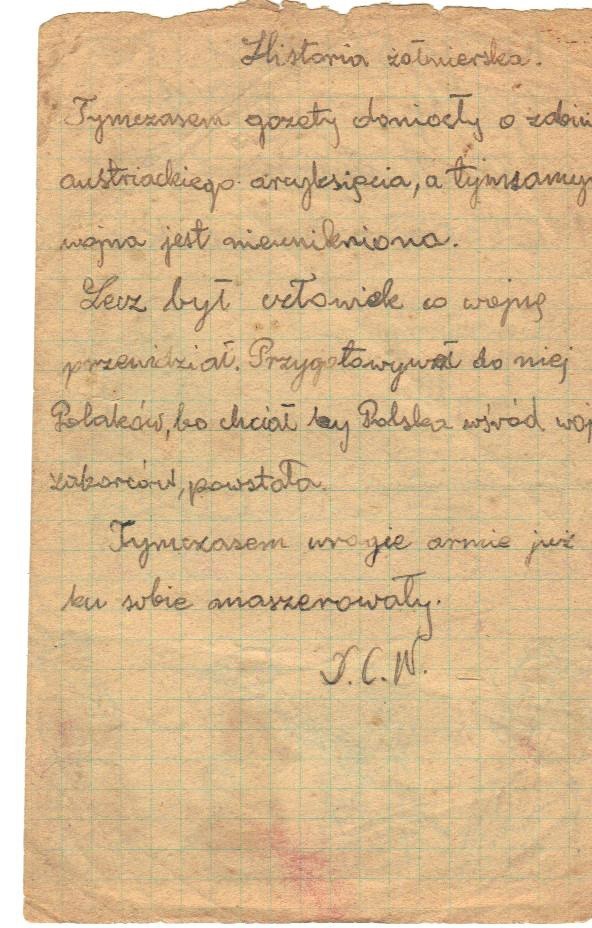 Historia żołnierska.
Tymczasem gazety doniosły o zabici
austriackiego arcyksięcia, a tymsamym
wojna jest nieunikniona.
Lecz był człowiek co wojnę
przewidział. Przygotowywał do niej
Polaków, bo chciał by Polska wśród woj
zaborców, powstała.
Tymczasem wrogie armie już
ku sobie maszerowały.